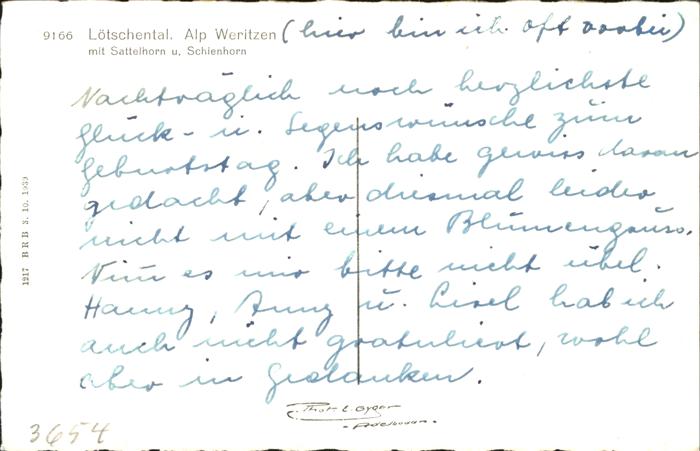 9166 Lötschental. Alp Weritzen (hier bin ich oft vorbei)
mit Sattelhorn u. Schienhorn
Nachträglich noch herzlichste
Glück- u. Segenswünsche zum
Geburtstag. Ich habe gewiss daran
gedacht, aber diesmal leider
nicht mit einem Blumengruss.
Nim es mir bitte nicht übel.
Hanny, Anny u. Lisel hab ich
auch nicht gratuliert, wohl
aber in Gedanken.
1217 BRB 3. 10. 1939
Phot E. Gyger
- Adelboden -
3654